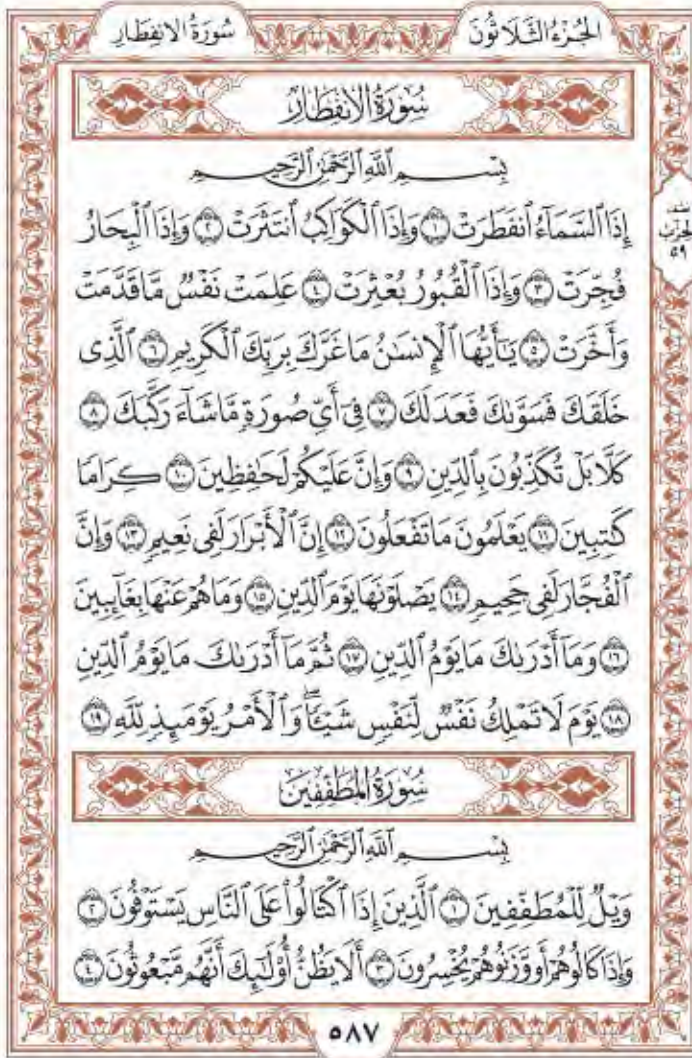 الجُزْءُ الثَّلَاثُونَ
سُورَةُ الانفِطَارِ
سُورَةُ الانفِطَارِ
بِسْمِ ٱللَّهِ ٱلرَّحْمَٰنِ ٱلرَّحِيمِ
إِذَا ٱلسَّمَآءُ ٱنفَطَرَتْ ١ وَإِذَا ٱلْكَوَاكِبُ ٱنتَثَرَتْ ٢ وَإِذَا ٱلْبِحَارُ
فُجِّرَتْ ٣ وَإِذَا ٱلْقُبُورُ بُعْثِرَتْ ٤ عَلِمَتْ نَفْسٌ مَّا قَدَّمَتْ
وَأَخَّرَتْ ٥ يَـٰٓأَيُّهَا ٱلْإِنسَـٰنُ مَا غَرَّكَ بِرَبِّكَ ٱلْكَرِيمِ ٦ ٱلَّذِى
خَلَقَكَ فَسَوَّىٰكَ فَعَدَلَكَ ٧ فِىٓ أَىِّ صُورَةٍ مَّا شَآءَ رَكَّبَكَ ٨
كَلَّا بَلْ تُكَذِّبُونَ بِٱلدِّينِ ٩ وَإِنَّ عَلَيْكُمْ لَحَـٰفِظِينَ ١٠ كِرَامًا
كَـٰتِبِينَ ١١ يَعْلَمُونَ مَا تَفْعَلُونَ ١٢ إِنَّ ٱلْأَبْرَارَ لَفِى نَعِيمٍ ١٣ وَإِنَّ
ٱلْفُجَّارَ لَفِى جَحِيمٍ ١٤ يَصْلَوْنَهَا يَوْمَ ٱلدِّينِ ١٥ وَمَا هُمْ عَنْهَا بِغَآئِبِينَ
١٦ وَمَآ أَدْرَىٰكَ مَا يَوْمُ ٱلدِّينِ ١٧ ثُمَّ مَآ أَدْرَىٰكَ مَا يَوْمُ ٱلدِّينِ
١٨ يَوْمَ لَا تَمْلِكُ نَفْسٌ لِّنَفْسٍ شَيْـًٔا ۖ وَٱلْأَمْرُ يَوْمَئِذٍ لِّلَّهِ ١٩
سُورَةُ المُطَفِّفِينَ
بِسْمِ ٱللَّهِ ٱلرَّحْمَٰنِ ٱلرَّحِيمِ
وَيْلٌ لِّلْمُطَفِّفِينَ ١ ٱلَّذِينَ إِذَا ٱكْتَالُوا۟ عَلَى ٱلنَّاسِ يَسْتَوْفُونَ ٢
وَإِذَا كَالُوهُمْ أَو وَّزَنُوهُمْ يُخْسِرُونَ ٣ أَلَا يَظُنُّ أُو۟لَـٰٓئِكَ أَنَّهُم مَّبْعُوثُونَ ٤
٥٨٧
الحزب
٥٩